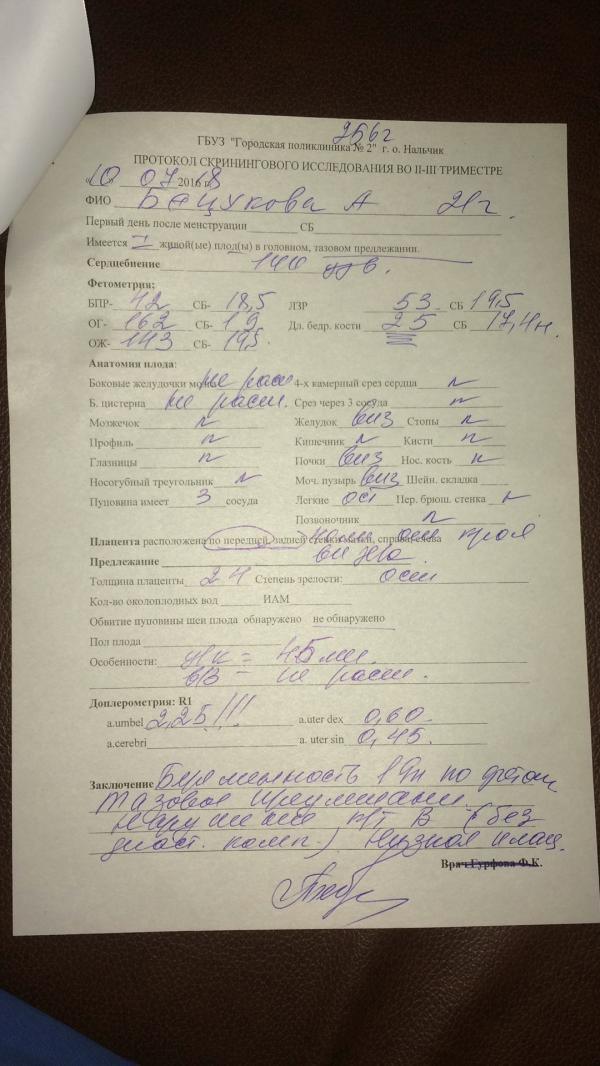 256г
ГБУЗ "Городская поликлиника № 2" г. о. Нальчик
ПРОТОКОЛ СКРИНИНГОВОГО ИССЛЕДОВАНИЯ ВО II-III ТРИМЕСТРЕ
10 07 2016 г. 18
ФИО Бацукова А 21г.
Первый день после менструации СБ
Имеется I живой(ые) плод(ы) в головном, тазовом предлежании.
Сердцебиение 140
Фетометрия:
БПР- 42 СБ- 18,5 ЛЗР 53 СБ 19,5
ОГ- 162 СБ- 19 Дл. бедр. кости 25 СБ 17,4н.
ОЖ- 143 СБ- 19,5
Анатомия плода:
Боковые желудочки мозга не расш 4-х камерный срез сердца n
Б. цистерна не расш. Срез через 3 сосуда n
Мозжечок n Желудок виз Стопы n
Профиль n Кишечник n Кисти n
Глазницы n Почки виз Нос. кость n
Носогубный треугольник n Моч. пузырь виз Шейн. складка
Пуповина имеет 3 сосуда Легкие Пер. брюш. стенка
Позвоночник n
Плацента расположена по передней, задней стенки матки, справа, слева край
Предлежание
Толщина плаценты 24 Степень зрелости:
Кол-во околоплодных вод ИАМ
Обвитие пуповины шеи плода обнаружено не обнаружено
Пол плода
Особенности: = 45 мм.
- не расш.
Доплерометрия: R1
a.umbel 2,25!!! a.uter dex 0,60
a.cerebri a. uter sin 0,45
Заключение Беременность 19н по фетом
Тазовое
Нарушение В (без
комп.) Низкая плац.
Врач Гурфова Ф.К.